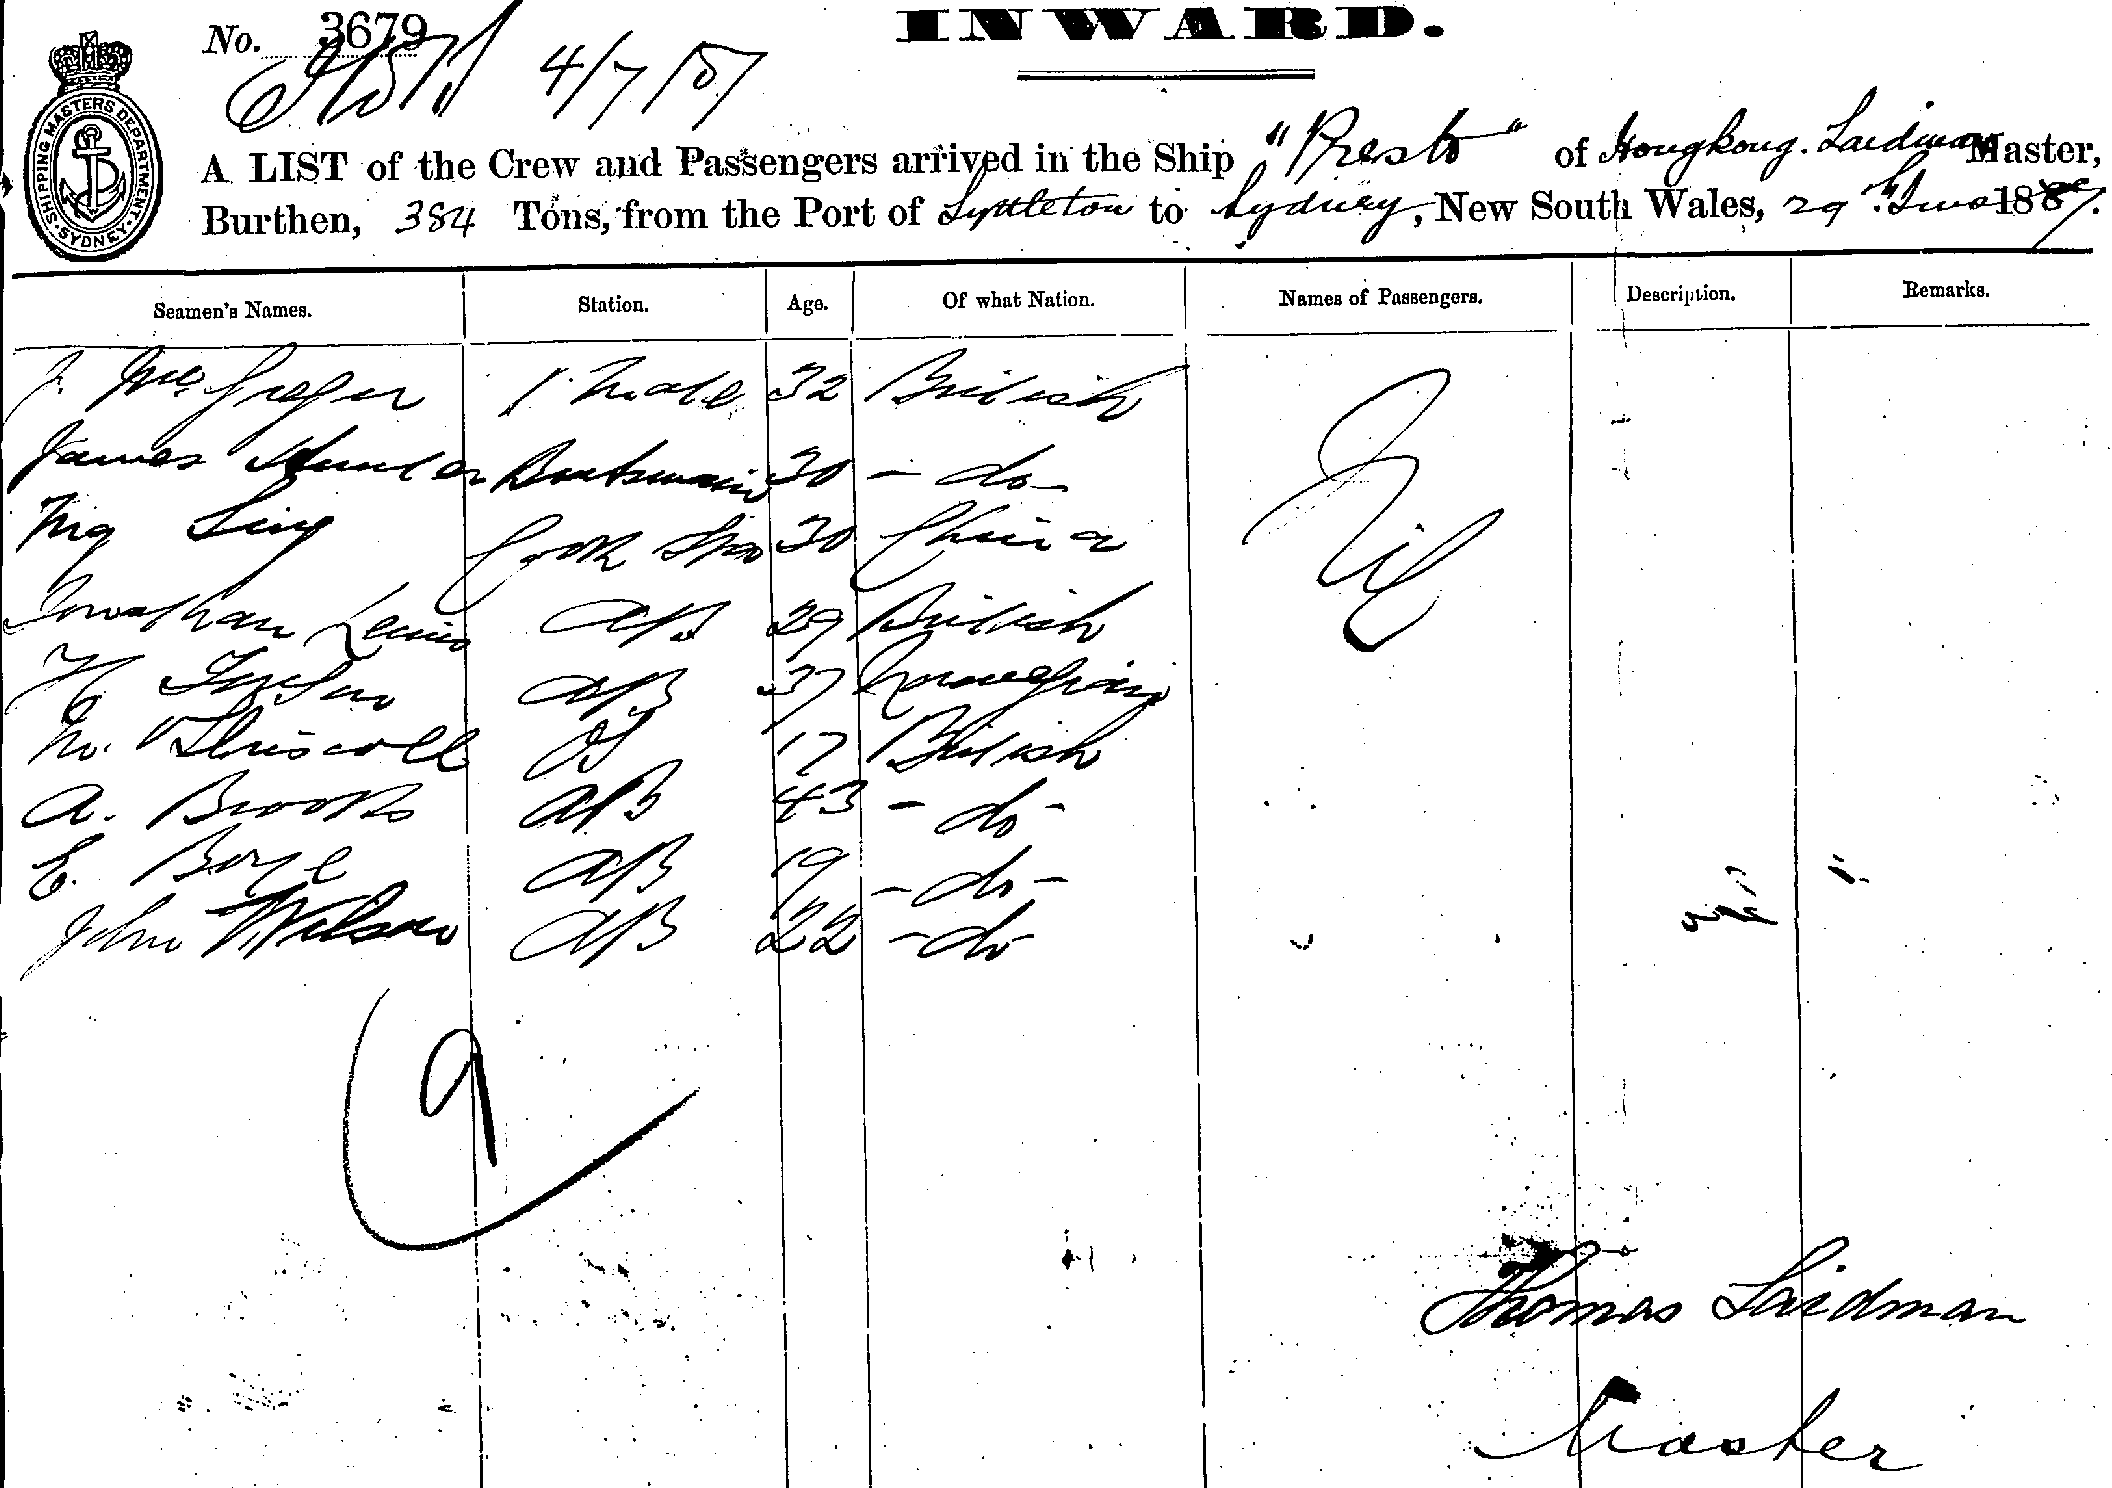 INWARD.
No. 3679
4/7/87
SHIPPING MASTERS DEPARTMENT SYDNEY
A LIST of the Crew and Passengers arrived in the Ship "Presto" of Hongkong. Laidman Master,
Burthen, 384 Tons, from the Port of Lyttleton to Sydney, New South Wales, 29th June 1887.
Seamen's Names. Station. Age. Of what Nation. Names of Passengers. Description. Remarks.
J. McGregor 1 Mate 32 British Nil
James Hunter Boatswain 30 - do -
Ling Cook Stw 30 China
Jonathan Lewis AB 29 British
H AB 37 Norwegian
M. Driscoll OS 17 British
A. Brooks AB 43 - do -
E. Boyle AB 19 - do -
John Wilson AB 22 - do -
9
Thomas Laidman
Master